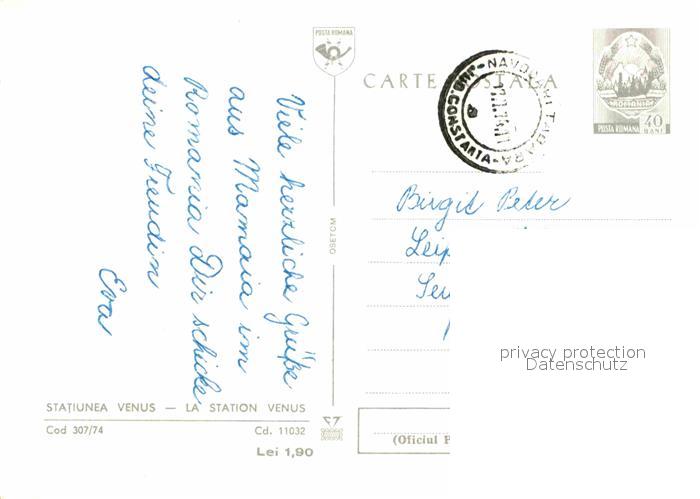 POSTA ROMANA
CARTE POSTALA
ROMANIA
POSTA ROMANA 40 BANI
NAVODARI TABARA
JUD. CONSTANTA
Viele herzliche Grüße
aus Mamaia im
Romania Dir schicke
deine Freudin
Eva
Birgit Peter
OSETCM
privacy protection
Datenschutz
STAŢIUNEA VENUS — LA STATION VENUS
Cod 307/74 Cd. 11032
Lei 1,90
(Oficiul P